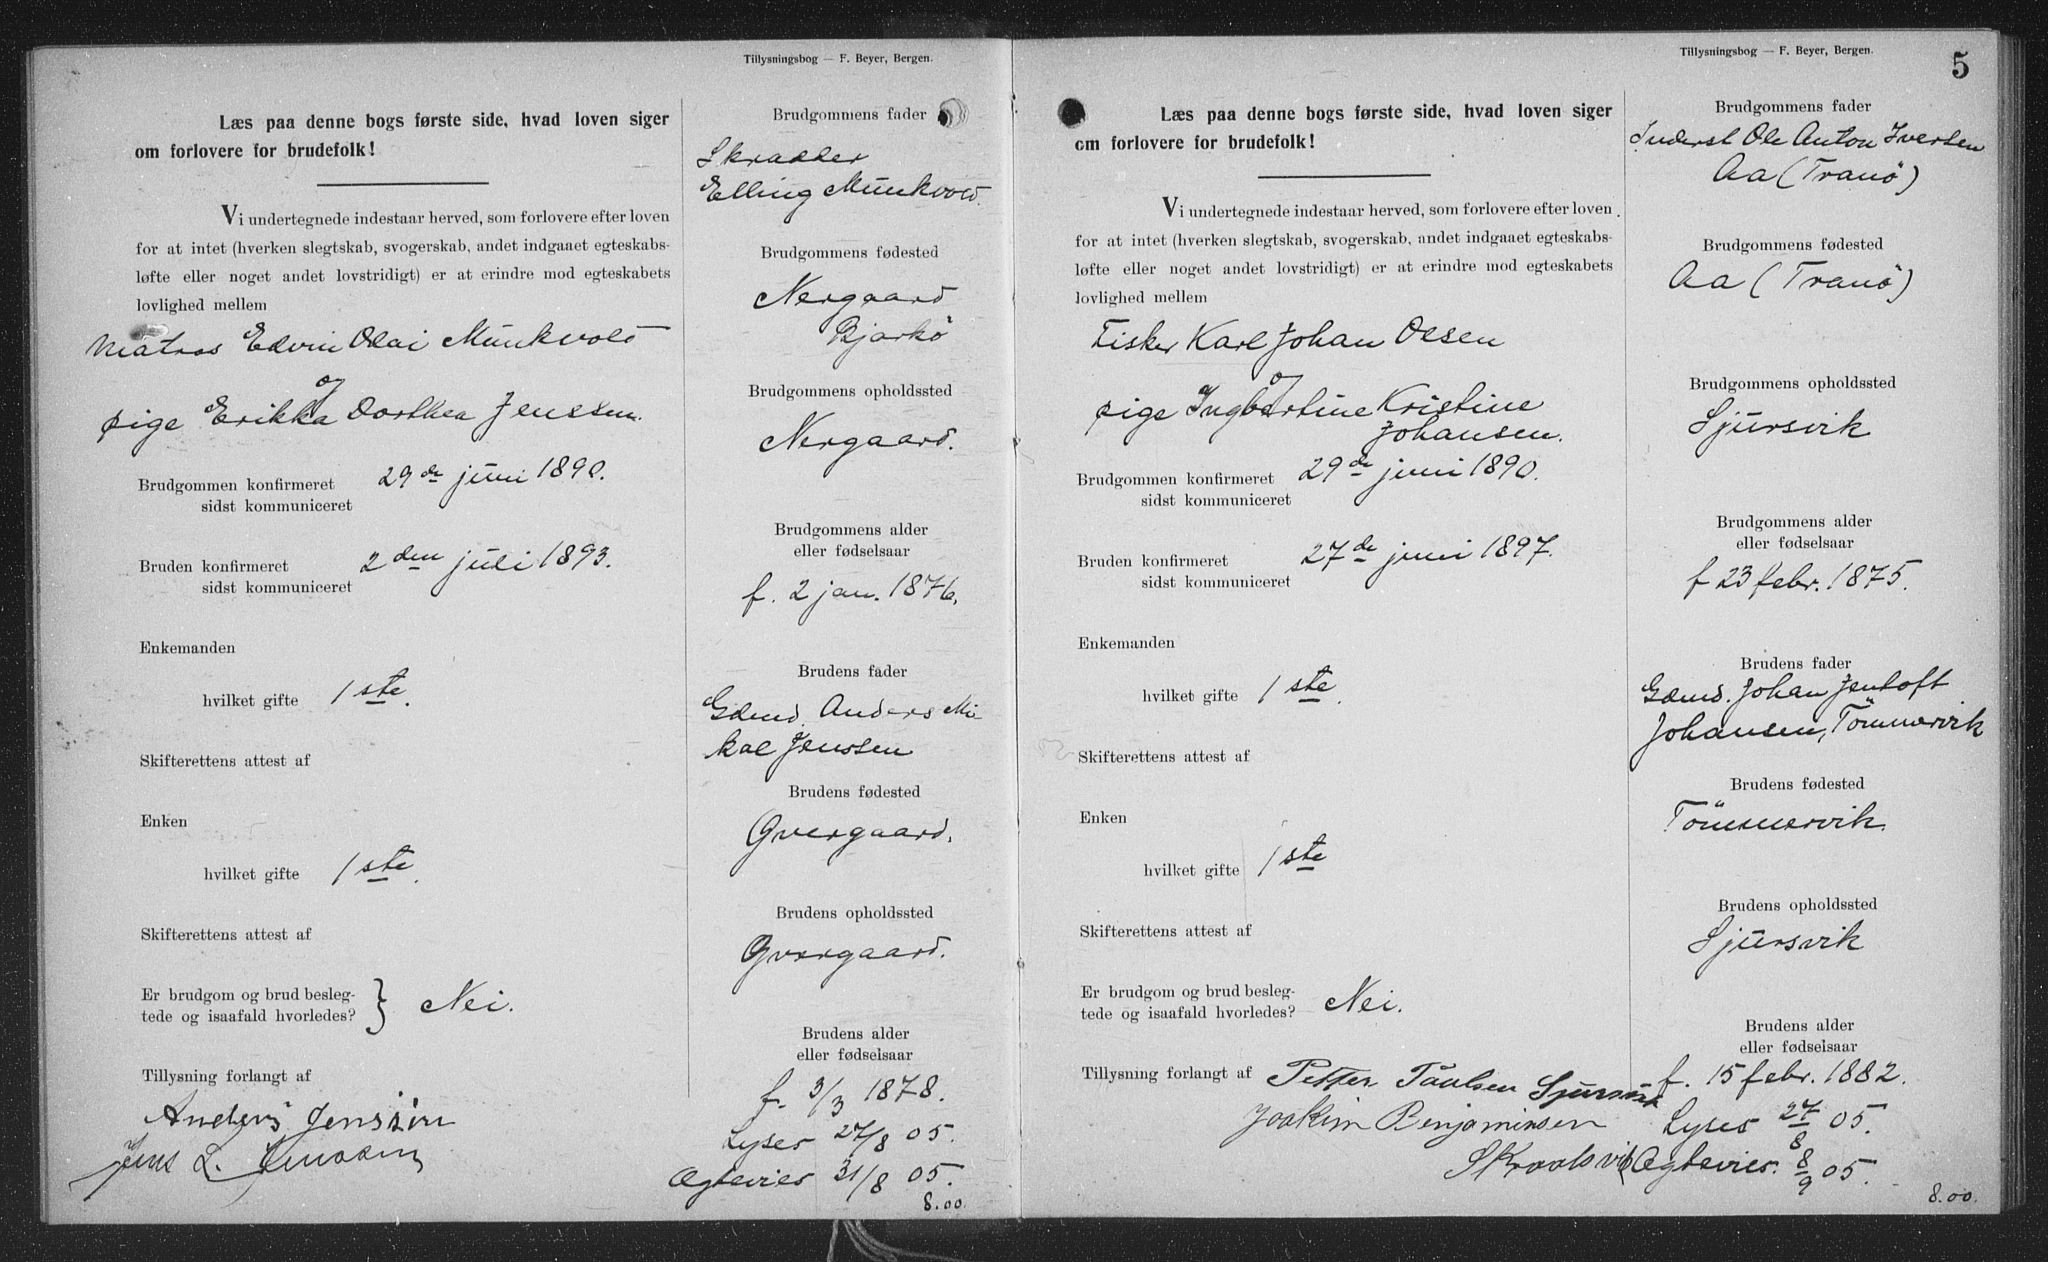 Tillysningsbog — F. Beyer, Bergen.
Læs paa denne bogs første side, hvad loven siger
om forlovere for brudefolk!
Vi undertegnede indestaar herved, som forlovere efter loven
for at intet (hverken slegtskab, svogerskab, andet indgaaet egteskabs-
løfte eller noget andet lovstridigt) er at erindre mod egteskabets
lovlighed mellem
Matros Edvin Olai Munkvold
og
pige Erikka Dorthea Jenssen.
Brudgommen konfirmeret 29de juni 1890.
sidst kommuniceret
Bruden konfirmeret 2den juli 1893.
sidst kommuniceret
Enkemanden
hvilket gifte 1ste.
Skifterettens attest af
Enken
hvilket gifte 1ste.
Skifterettens attest af
Er brudgom og brud besleg-
tede og isaafald hvorledes? } Nei.
Tillysning forlangt af
Anders Jenssen
Jens L. Jenssen
Brudgommens fader
Skrædder
Elling Munkvold.
Brudgommens fødested
Nergaard
Bjarkö
Brudgommens opholdssted
Nergaard.
Brudgommens alder
eller fødselsaar
f. 2 jan. 1876.
Brudens fader
Gdmd. Anders Mi
kal Jenssen
Brudens fødested
Gvergaard.
Brudens opholdssted
Gvergaard.
Brudens alder
eller fødselsaar
f. 3/3 1878.
Lyses 27/8 05.
Ægtevies 31/8 05.
8.00.
Tillysningsbog — F. Beyer, Bergen.
5
Læs paa denne bogs første side, hvad loven siger
om forlovere for brudefolk!
Vi undertegnede indestaar herved, som forlovere efter loven
for at intet (hverken slegtskab, svogerskab, andet indgaaet egteskabs-
løfte eller noget andet lovstridigt) er at erindre mod egteskabets
lovlighed mellem
Fisker Karl Johan Olsen
og
pige Ingbertine Kristine
Johansen.
Brudgommen konfirmeret 29de juni 1890.
sidst kommuniceret
Bruden konfirmeret 27de juni 1897.
sidst kommuniceret
Enkemanden
hvilket gifte 1ste.
Skifterettens attest af
Enken
hvilket gifte 1ste
Skifterettens attest af
Er brudgom og brud besleg-
tede og isaafald hvorledes? Nei.
Tillysning forlangt af Petter Paulsen Sjursvik
Joakim Benjaminsen
Skrolsvik
Brudgommens fader
Inderst Ole Anton Iversen
Aa (Tranö)
Brudgommens fødested
Aa (Tranö)
Brudgommens opholdssted
Sjursvik
Brudgommens alder
eller fødselsaar
f 23 febr. 1875.
Brudens fader
Gdmd. Johan Jentoft
Johansen, Tömmervik
Brudens fødested
Tömmervik.
Brudens opholdssted
Sjursvik
Brudens alder
eller fødselsaar
f. 15 febr. 1882.
Lyses 27/8 05.
Ægtevies. 8/9 05.
8.00.